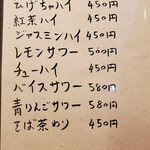 ひげちゃハイ 450円
紅茶ハイ 450円
ジャスミンハイ 450円
レモンサワー 500円
チューハイ 450円
バイスサワー 580円
青りんごサワー 580円
そば茶わり 450円